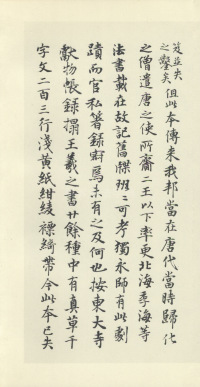 笈並失
之鑿矣但此本傳来我邦當在唐代當時歸化
之僧遣唐之使所齎二王以下率更北海季海等
法書載在故記舊牒班二可考獨永師有此劇
蹟而官私著録財焉未有之及何也按東大寺
獻物帳録搨王羲之書廿餘種中有真草千
字文二百三行淺黄紙紺綾褾綺帶今此本已失